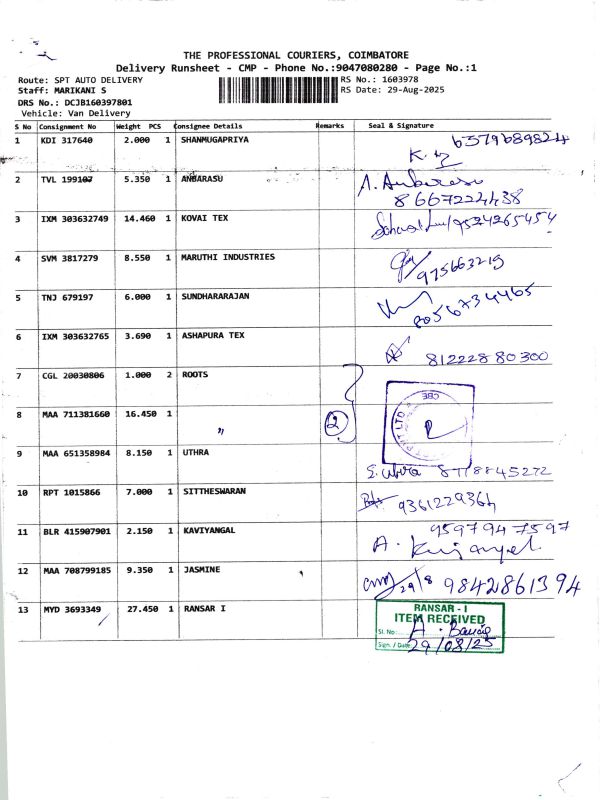 THE PROFESSIONAL COURIERS, COIMBATORE
Delivery Runsheet - CMP - Phone No.:9047080280 - Page No.:1
Route: SPT AUTO DELIVERY RS No.: 1603978
Staff: MARIKANI S RS Date: 29-Aug-2025
DRS No.: DCJB160397801
Vehicle: Van Delivery
S No Consignment No Weight PCS Consignee Details Remarks Seal & Signature
1 KDI 317640 2.000 1 SHANMUGAPRIYA 6379689824
2 TVL 199107 5.350 1 ANBARASU A. Anbarasu
8667224438
3 IXM 303632749 14.460 1 KOVAI TEX 9524265454
4 SVM 3817279 8.550 1 MARUTHI INDUSTRIES
975663219
5 TNJ 679197 6.000 1 SUNDHARARAJAN
8056734465
6 IXM 303632765 3.690 1 ASHAPURA TEX
8122288 0300
7 CGL 20030806 1.000 2 ROOTS
CBE
8 MAA 711381660 16.450 1 " 2
PVT LTD
9 MAA 651358984 8.150 1 UTHRA
S. Uthra 8778845272
10 RPT 1015866 7.000 1 SITTHESWARAN
9361229364
11 BLR 415907901 2.150 1 KAVIYANGAL 9597947597
A.
12 MAA 708799185 9.350 1 JASMINE 29/8 9842861394
13 MYD 3693349 27.450 1 RANSAR I RANSAR - I
ITEM RECEIVED
Sl. No: A
Sign. / Date: 29/08/25